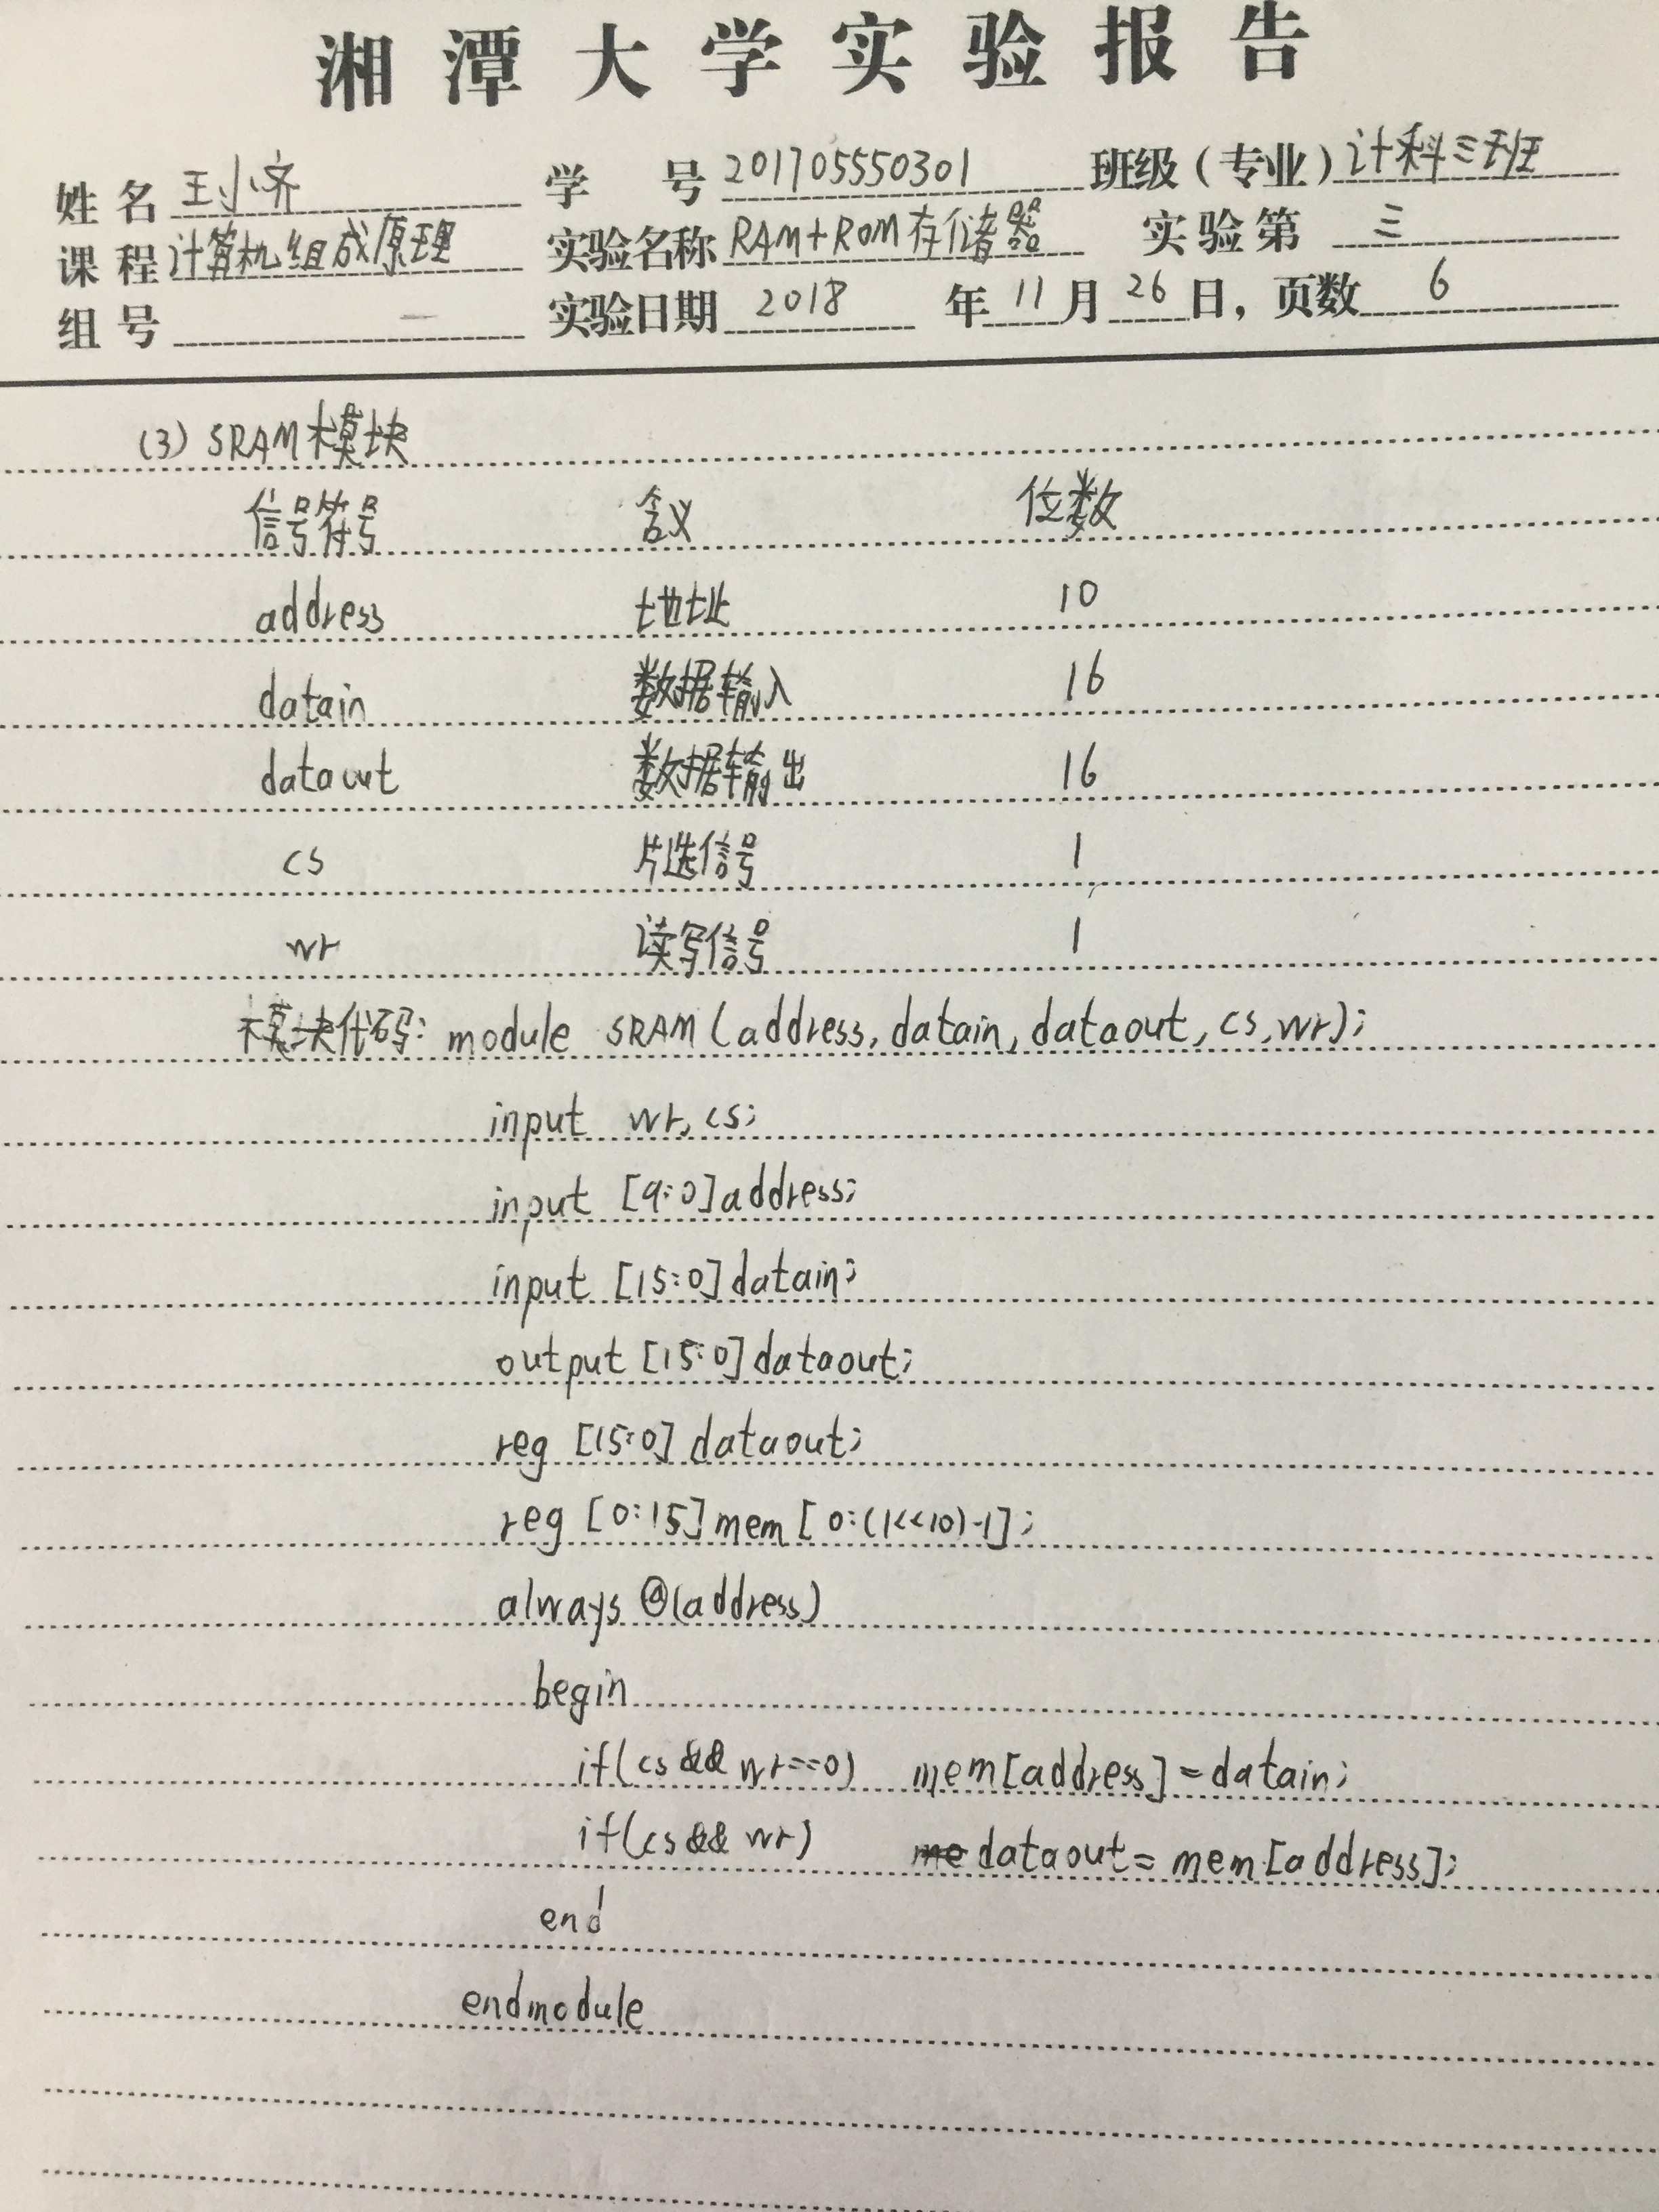 湘潭大学实验报告
姓名 王小济 学号 201705550301 班级(专业) 计科三班
课程 计算机组成原理 实验名称 RAM+ROM存储器 实验第 三
组号 一 实验日期 2018 年 11 月 26 日, 页数 6
(3) SRAM模块
信号符号 含义 位数
address 地址 10
datain 数据输入 16
dataout 数据输出 16
cs 片选信号 1
wr 读写信号 1
模块代码: module SRAM(address, datain, dataout, cs, wr);
input wr, cs;
input [9:0] address;
input [15:0] datain;
output [15:0] dataout;
reg [15:0] dataout;
reg [0:15] mem [0:(1<<10)-1];
always @(address)
begin
if(cs && wr==0) mem[address] = datain;
if(cs && wr) me dataout = mem[address];
end
endmodule